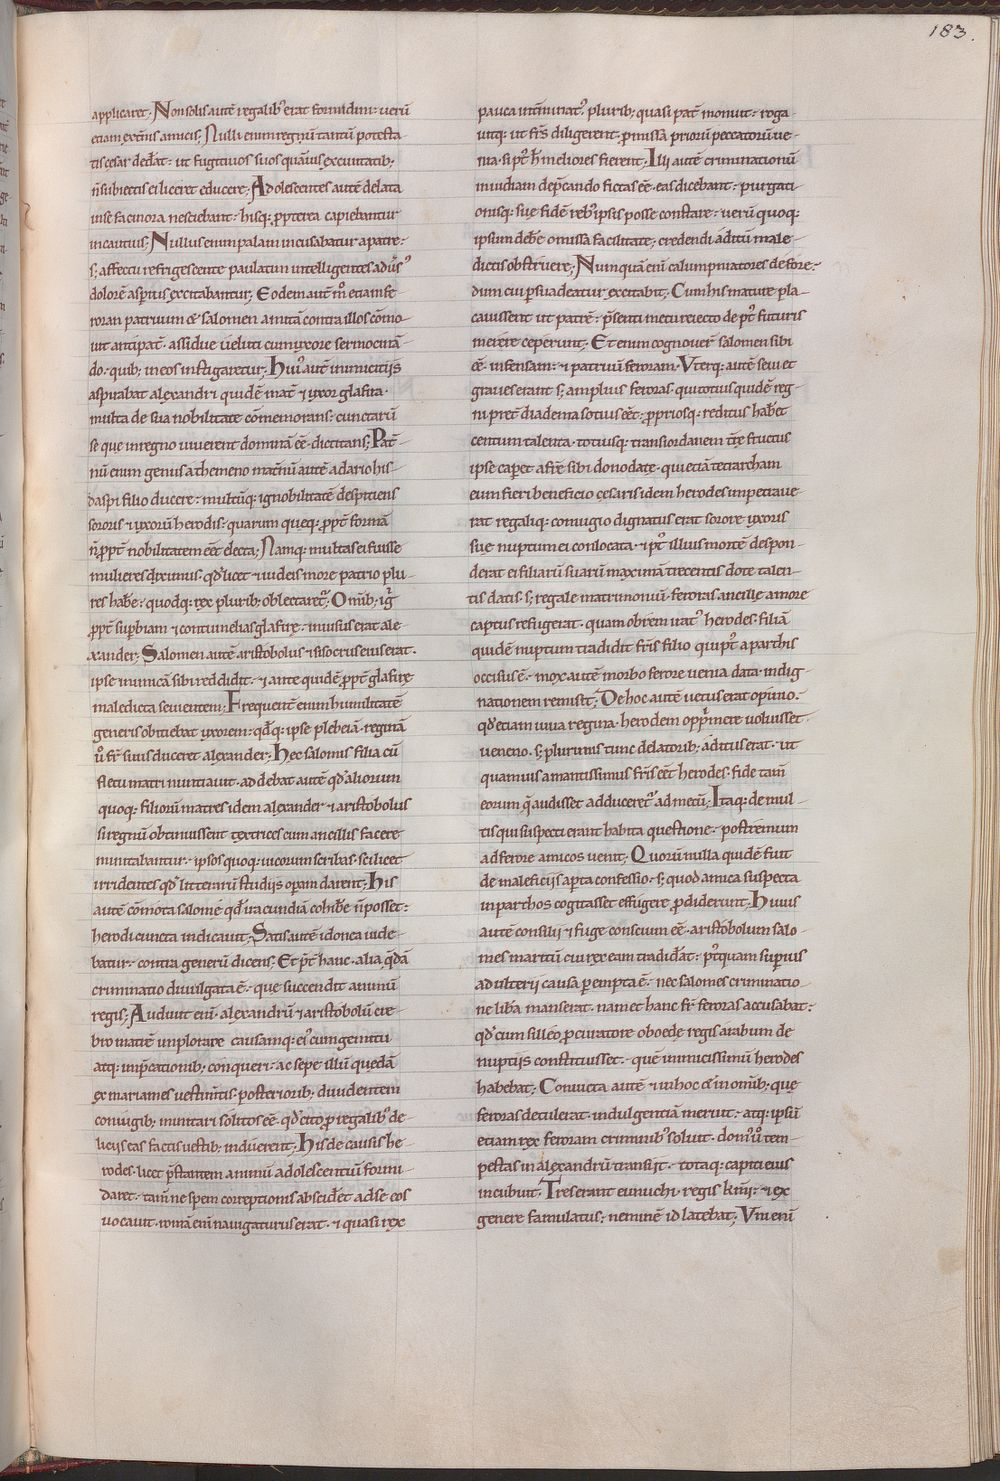 183.
applicaret. Non solis autē regalibꝰ erat formidini: verū
etiam extnis amicis; Nulli enim regnū tantū potesta-
tis cesar dedat: ut fugitivos suos quāuis ex civitatib;
n̄ subiectis ei liceret educere; Adolescentes autē delata
in se facinora nesciebant: hisq; ꝓpterea capiebantur
incautius; Nullus enim palam incusabatur a patre:
s; affectu refrigescente paulatim intelligentes adūsꝰ
dolorē asperius excitabantur; Eodem autē mō etiam fe-
roran patruum & salomen amitā contra illos cōmo-
vit antipat̄. assidue ueluti cum uxore sermocinā-
do. quib; in eos instigaretur; Huiꝰ autē inimicitijs
aspirabat alexandri quidē mat̄ & uxor glafira.
multa de sua nobilitate cōmemorans: cunctarū
se que in regno viverent dominā eē. dictitans; Pat̄-
nū enim genus a themeno mat̄nū autē a dario his-
daspi filio ducere: multūq; ignobilitatē despiciens
sororis & uxorū herodis: quarum queq; ꝓpt̄ formā
n̄ ꝓpt̄ nobilitatem eēt electa; Namq; multas ei fuisse
mulieres diximus. qd̄ licet & iudeis more patrio plu-
res habē: quodq; rex plurib; oblectaret̄; Omib; ig̅
ꝓpt̄ supbiam & contumelias glafirę. invisus erat ale-
xander; Salomen autē aristobolus & si socrus ei erat.
ipse inimicā sibi reddidit. & ante quidē ꝓpt̄ glafirę
maledicta sevientem; Frequent̄ enim humilitatē
generis obiciebat uxorem: qd̄q; ipse plebeiā. reginā
ū fr̄ suus duceret alexander; Hec salomis filia cū
fletu matri nuntiavit. addebat autē qd̄ aliorum
quoq; filiorū matres idem alexander & aristobolus
si regnū obtinuissent textrices cum ancillis facere
minitabantur. ipsos quoq; vicorum scribas. scilicet
irridentes qd̄ litterarū studijs opam darent; His
autē cōmota salome qd̄ iracundiā cohibē n̄ posset:
herodi cuncta indicavit; Satis autē idonea vide-
batur. contra generū dicens; Et p̄t hanc. alia q̄dā
criminatio divulgata ē. que succendit animū
regis; Audivit eni. alexandrū & aristobolū cre-
bro matrē implorare causamq; eiꝰ cum gemitu
atq; imp̄cationib; conqueri. ac sepe illū quedā
ex mariames vestim̄tis posteriorib; dividentem
coniugib; minitari solitos eē. qd̄ cito ꝓ regalibꝰ de-
licijs eas factis vestib; indverent; His de causis he-
rodes. licet p̄stantem animū adolescentiū formi-
daret. tam̄ ne spem correptionis abscidēt ad se eos
vocavit. romā eni navigaturus erat. & quasi rex
pauca intminatꝰ. plurib; quasi pat̄ monuit: roga-
vitq; ut frs̄ diligerent. ꝓmissā priorū peccatorū ve-
nia. si pꝰt h̄ meliores fierent; Illi autē criminationū
invidiam dep̄cando fictas eē. eas dicebant. purgati-
onisq; suę fidē rebꝰ ipsis posse constare: verū quoq;
ipsum debē omissa facilitate; credendi aditū male-
dictis obstruere; Nunquā eni calumpniatores defore:
dum cui psuadeatur excitabit; Cum his mature pla-
cavissent ut patrē: p̄senti metu reiecto de pꝰt futuris
merere ceperunt; Et enim cognover̄ salomen sibi
eē. infensam: & patruū feroram. Vterq; autē sevi et
graves erant s; amplius feroras. qui totius quidē reg-
ni pret̄ diadema sotius eēt: ꝓpriosq; reditus habēt
centum talenta. totiusq; transiordanem tr̄ę fructus
ipse capet. a fr̄e sibi dono date. qui etiā tetrarcham
eum fieri beneficio cęsaris idem herodes impetrave-
rat regaliq; coniugio dignatus erat sorore uxoris
suę nuptum ei conlocata. & pꝰt illius mortē despon-
derat ei filiarū suarū maximā trecentis dote talen-
tis datis. s; regale matrimoniū. feroras ancillę amore
captus refugerat. quam obrem iratꝰ herodes. filiā
quidē nuptum tradidit fris̄ filio qui pꝰt a parthis
occisus ē. mox autē morbo ferore venia data. indig-
nationem remisit; De hoc autē vetus erat opinio.
qd̄ etiam viva regina. herodem opp̄mere voluisset.
veneno. s; plurimis tunc delatorib; aditus erat. ut
quamvis amantissimus fris̄ eēt herodes. fide tam̄
eorum q̄ audisset adduceret̄ ad metū; Itaq; de mul-
tis qui suspecti erant habita questione. postremum
ad ferore amicos venit; Quorū nulla quidē fuit
de maleficijs apta confessio. s; quod amica suspecta
in parthos cogitasset effugere ꝓdiderunt; Huius
autē consilij & fuge conscium eē. aristobolum salo-
mes maritū cui rex eam tradidāt. pꝰtquam superius
adulterij causa perempta ē. nec salomes criminatio-
ne libera manserat. nam et hanc fr̄ feroras accusabat:
qd̄ cum silleo ꝓcuratore oboede regis arabum de
nuptijs constituisset. quē inimicissimū herodes
habebat; Convicta autē & in hoc & in omib; que
feroras detulerat. indulgentiā meruit. atq; ipsū
etiam rex feroram criminibꝰ solvit. domꝰ ū tem-
pestas in alexandrū transijt. totaq; capiti eius
incubuit. Tres erant eunuchi regis kmi: & ex
genere famulatus: neminē id latebat; Vni eni